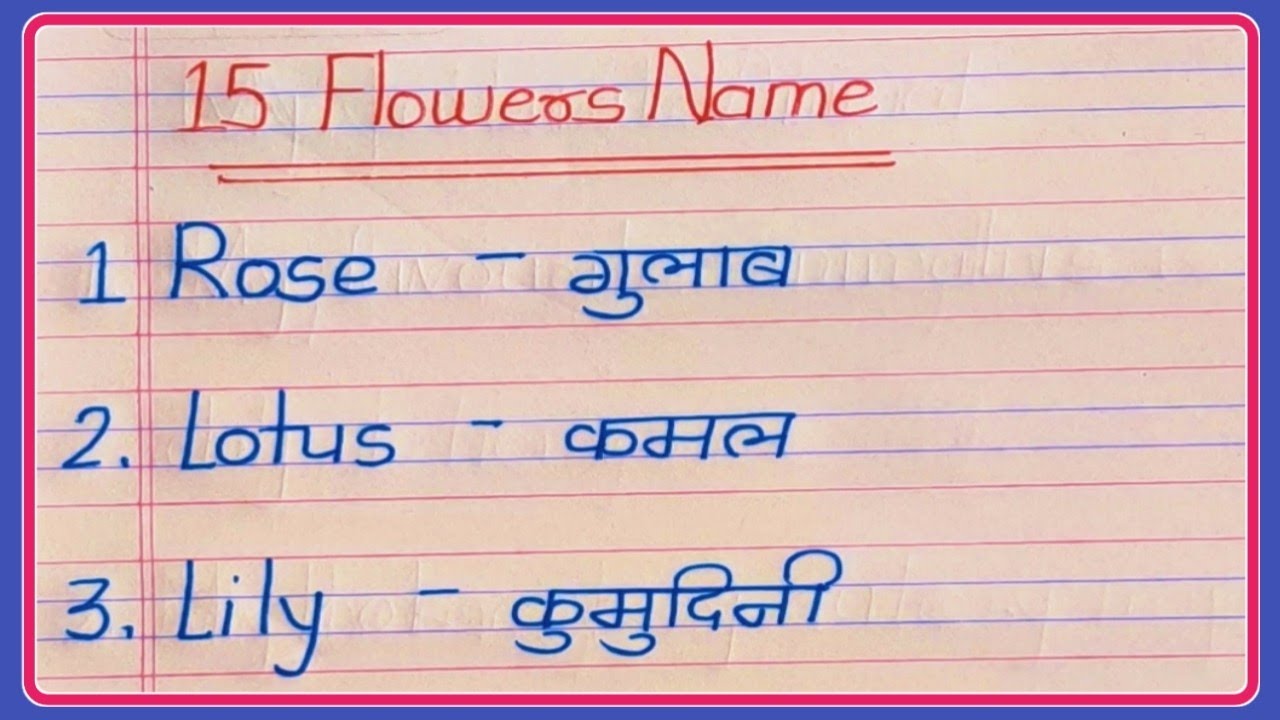 15 Flowers Name
1 Rose - गुलाब
2. Lotus - कमल
3. Lily - कुमुदिनी